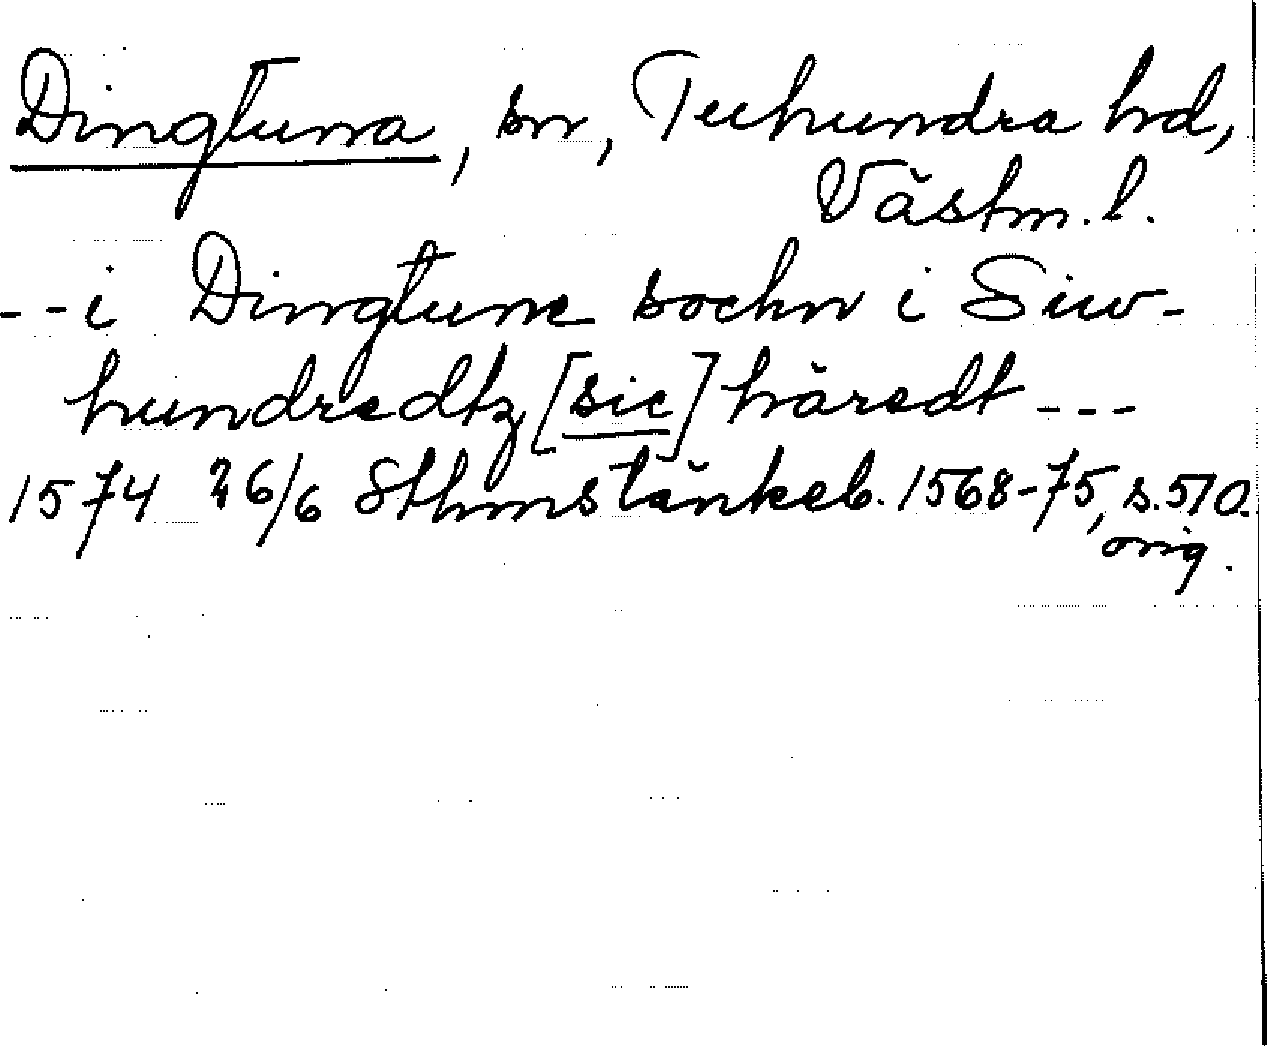 Dingtuna, sn, Tuhundra hd,
Västm. l.
--i Dingtune sochn i Siw-
hundredtz [sic] häredt ---
1574 26/6 Sthmstänkeb. 1568-75, s. 510.
orig.